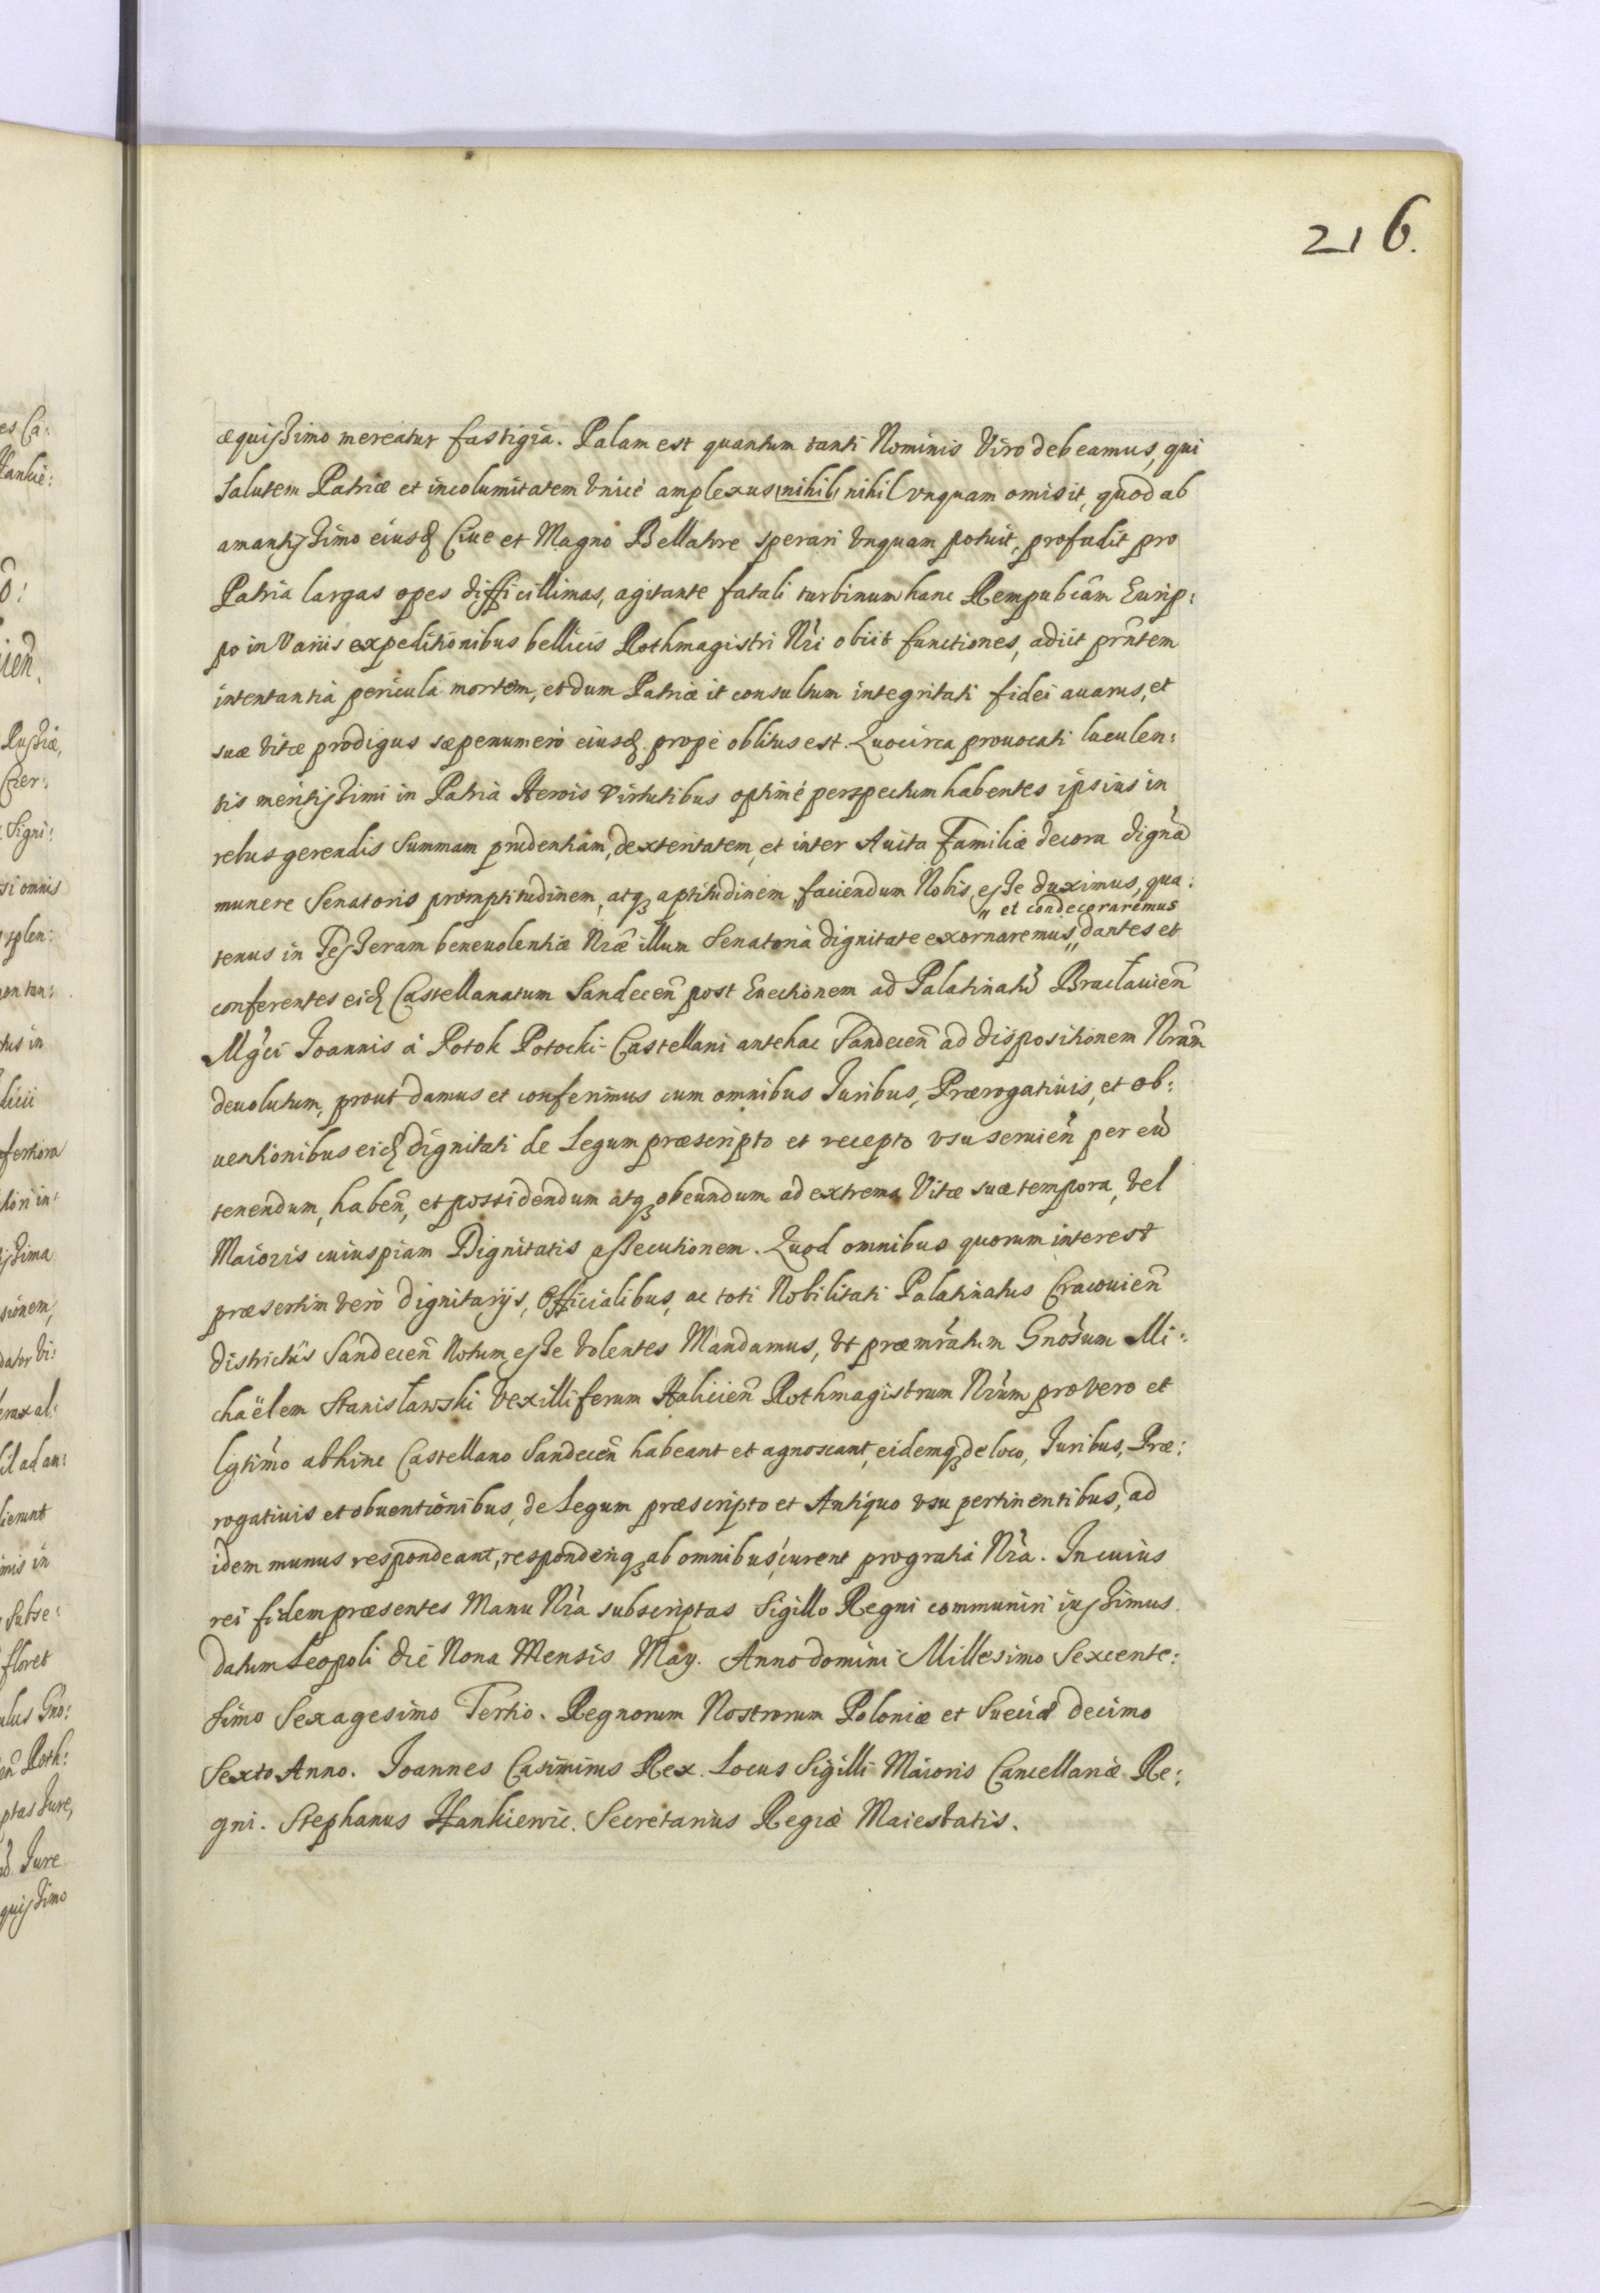 216.
æquissimo mereatur fastigia. Palam est quantum tanti Nominis Viro debeamus, qui
Salutem Patriæ et incolumitatem Vnicè amplexus nihil nihil vnquam omisit, quod ab
amantissimo eiusd Ciue et Magno Bellatore sperari Vnquam potuit, profudit pro
Patria largas opes difficillimas, agitante fatali turbinum hanc Rempubcâm Eurip:
po in Varijs expeditionibus bellicis Rothmagistri Nri obijt functiones, adijt prntem
intentantia pericula mortem, et dum Patriæ it consultum integritati fidei auarus, et
suæ Vitæ prodigus sæpenumerò eiusd. propè oblitus est. Quocirca prouocati luculen:
tis meritissimi in Patria Herois Virtutibus optimè perspectum habentes ipsius in
rebus gerendis Summam prudentiam, dexteritatem, et inter Auita Familiæ decora dignã
munere Senatoris promptitudinem, atq aptitudinem faciendum Nobis esse duximus, qua:
„ et condecoraremus
tenus in Tesseram beneuolentiæ Nræ illum Senatoria dignitate exornaremus„ dantes et
conferentes eid Castellanatum Sandecen post Euectionem ad Palatinatũ Bracłauien
Mgci Joannis à Potok Potocki Castellani antehac Sandecen ad dispositionem Nram
deuolutum, prout damus et conferimus cum omnibus Juribus, Prærogatiuis, et ob:
uentionibus eid dignitati de Legum præscripto et recepto vsu seruien per eũ
tenendum, haben, et possidendum atq obeundum ad extrema Vitæ suæ tempora, vel
Maioris cuiuspiam Dignitatis assecutionem. Quod omnibus quorum interest
præsertim verò dignitarijs, Officialibus, ac toti Nobilitati Palatinatus Cracouien
districtûs Sandecen Notum esse Volentes Mandamus, Vt præmratum Gnosum Mi:
chaëlem Stanisławski Vexilliferum Halicien Rothmagistrum Nrum pro vero et
lgtimo abhinc Castellano Sandecen habeant et agnoscant, eidemq de loco, Juribus, Præ:
rogatiuis et obuentionibus, de Legum præscripto et Antiquo vsu pertinentibus, ad
idem munus respondeant, responderiq ab omnibus curent pro gratia Nra. In cuius
rei fidem præsentes Manu Nra subscriptas Sigillo Regni communiri iussimus.
datum Leopoli die Nona Mensis May. Anno domini Millesimo Sexcente:
simo Sexagesimo Tertio. Regnorum Nostrorum Poloniæ et Sueciæ decimo
Sexto Anno. Joannes Casimirus Rex. Locus Sigilli Maioris Cancellariæ Re:
gni. Stephanus Hankiewic. Secretarius Regiæ Maiestatis.